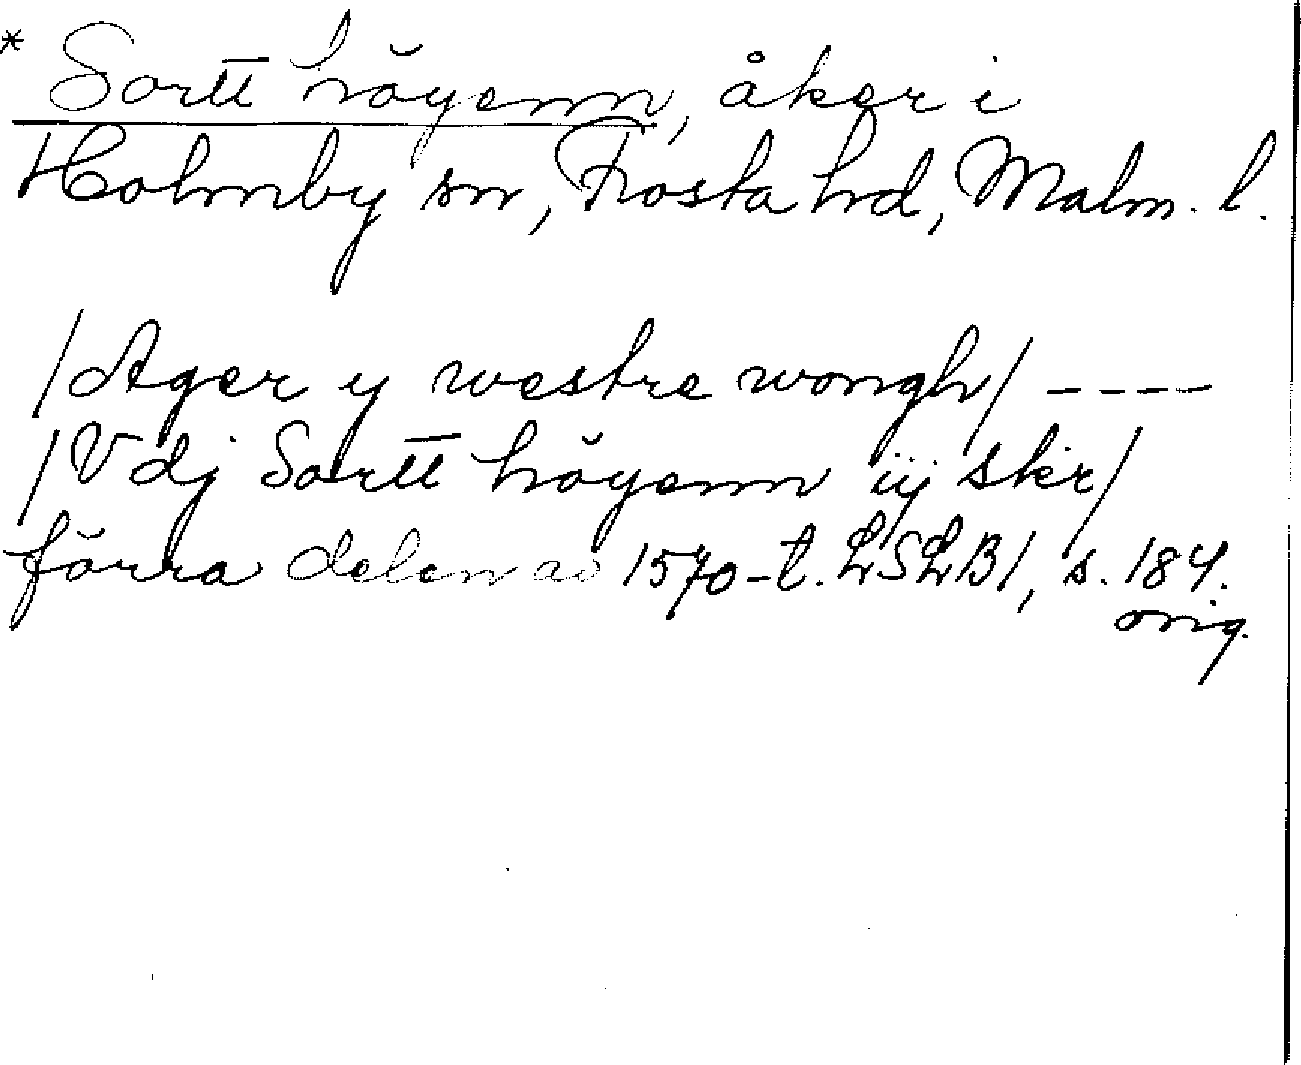 * Sortt höyenn, åker i
Holmby sn, Frosta hd, Malm. l.
/Ager y westre wongh/ ----
/Vdj Sortt höyenn iij skr/
förra delen av 1570-t. LSLB1, s. 184.
orig.